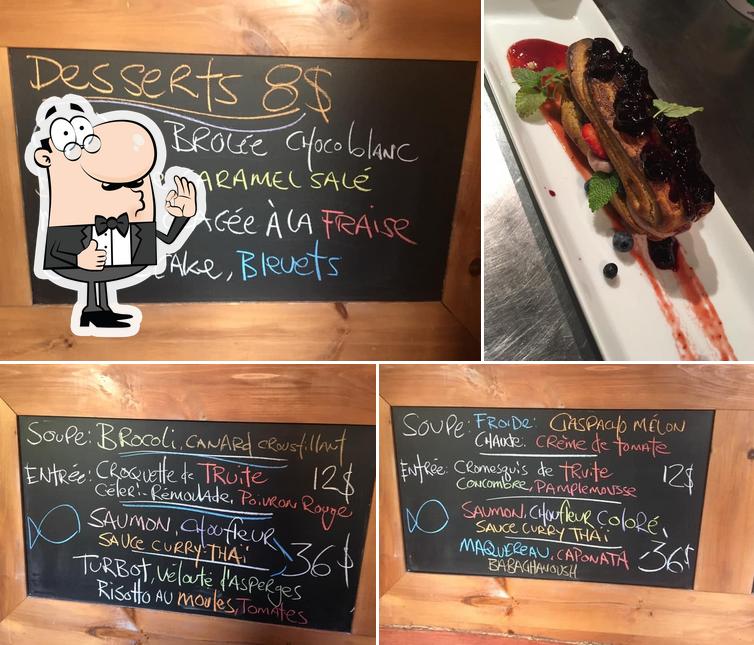 Desserts 8$
Brolée Chocoblanc
Caramel salé
À la Fraise
Bleuets
Soupe: Brocoli, canard croustillant
Entrée: Croquette de Truite 12$
Céleri-Rémoulade, Poivron Rouge
Saumon, Choufleur
Sauce curry-Thaï 36$
Turbot, Velouté d'Asperges
Risotto au moules, Tomates
Soupe: Froide: Gaspacho Melon
Chaude: Crème de tomate
Entrée: Cromesquis de Truite 12$
Concombre, Pamplemousse
Saumon, Choufleur Coloré,
Sauce curry Thaï
Maquereau, Caponata 36$
Babaghanoush